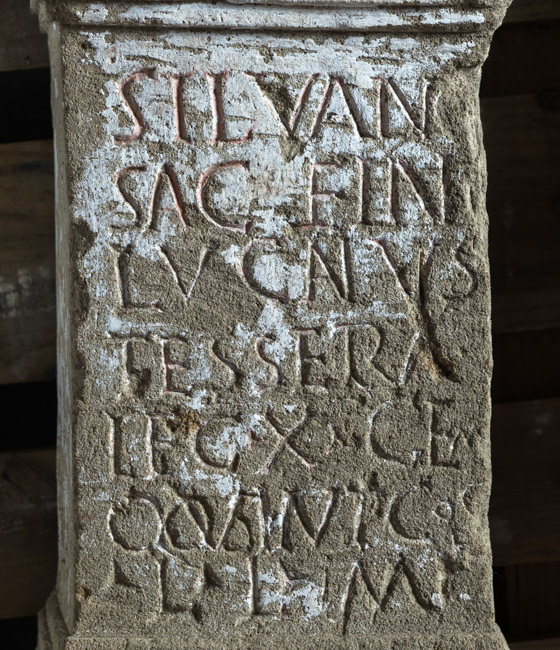 SILVAN
SAC FIN
LVCANVS
TESSERA
LEG X CE
QVANTCS
L L M